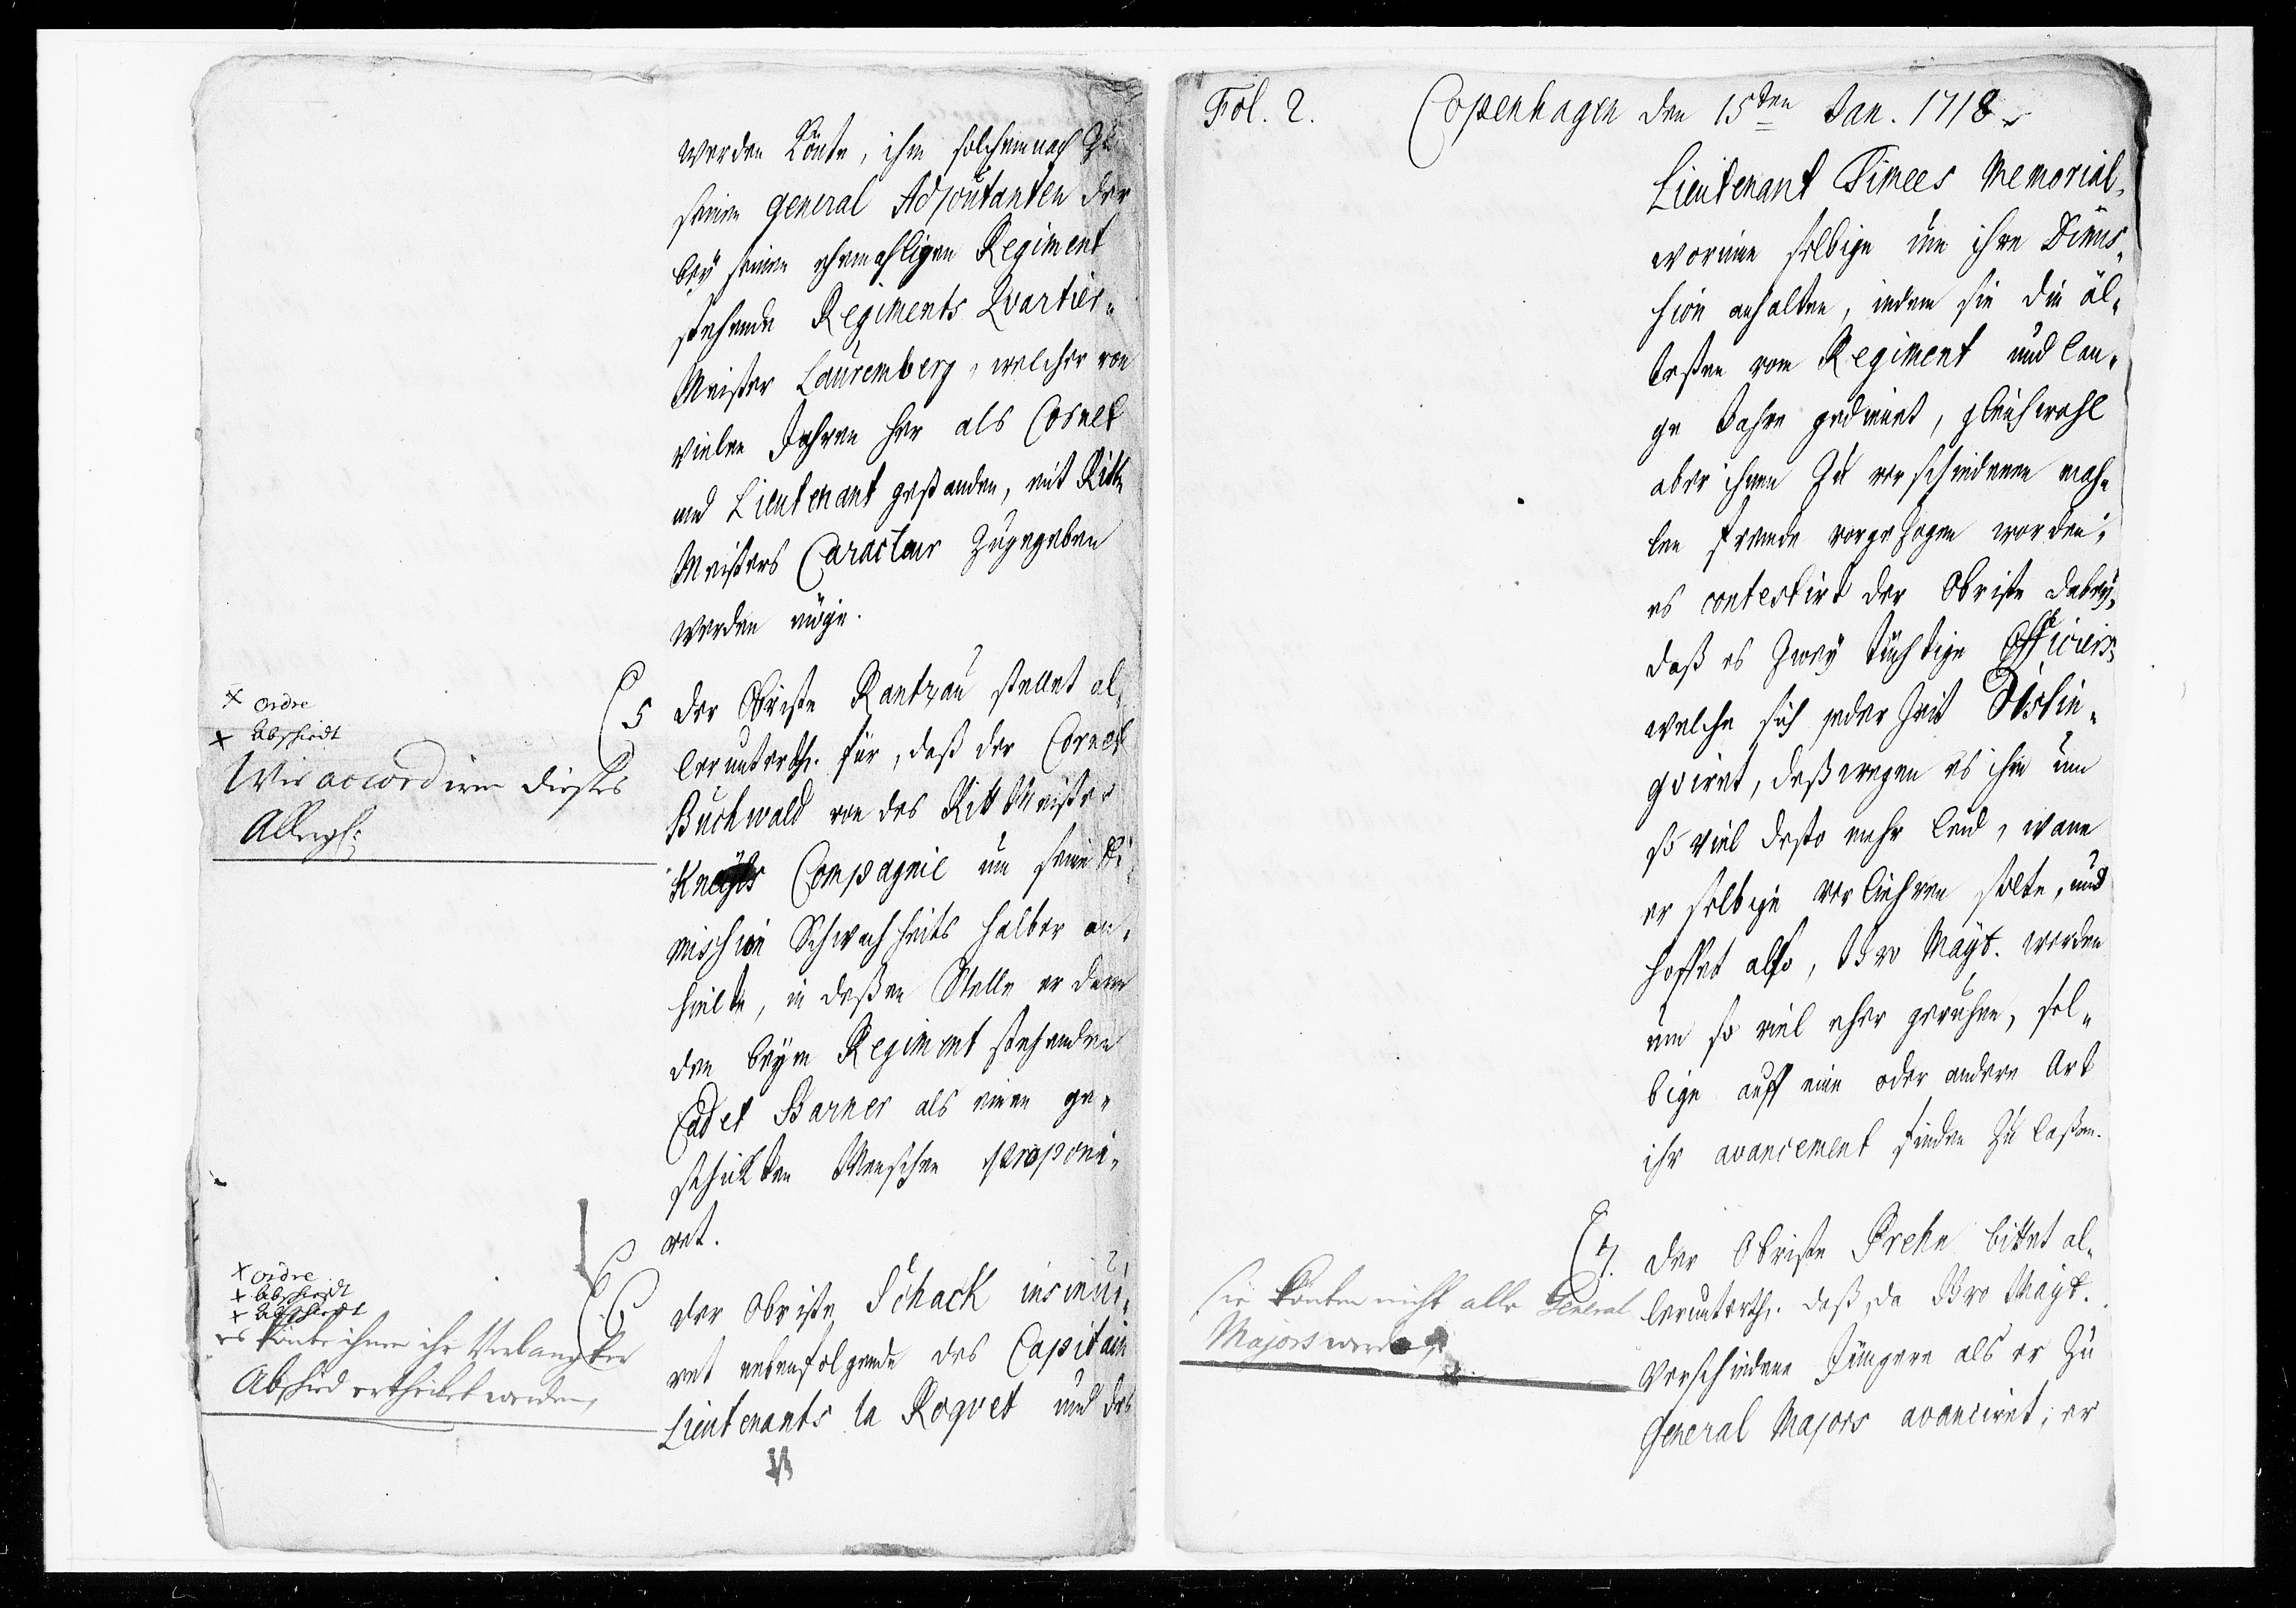 werden könte, ihm solchemnach zu
seinem general Adjoutanten der
beÿ seinem ehemahligen Regiment
stehende Regiments Qvartier-
Meister Lauremberg, welcher von
vielen Jahren her als Cornet
und Lieutenant gestanden, mit Ritt-
Meisters Caracteur zugegeben
werden möge.
x ordre
x Abschiedt
Wir accordiren dießes
Allergh:
5 der Obriste Rantzau stellet al-
lerunterth. für, daß der Cornet
Buchwald von des Ritt Meister
Compagnie um seine di-
mission Schwachheits halber an-
hielte, in deßen Stelle er dann
den beÿm Regiment stehenden
Cadet Barner als einen ge-
schickten Menschen proponi-
ret.
x ordre
x Abscheidt
x Abscheidt
es könte ihnen ihr Verlangter
Abschied ertheilet werden,
6 der Obriste Schack insinui-
ret nebenfolgende des Capitain
Lieutenants la Roqvet und des
Fol. 2. Copenhagen den 15ten Jan. 1718
Lieutenant Timees Memorial,
worinne selbige um ihre Dimis-
sion anhalten, indem sie die äl-
testen vom Regiment und lan-
ge Jahre gedienet, gleichwohl
aber ihnen zu verschiedenen mah-
len fremde vorgezogen worden;
es contestirt der Obriste dabeÿ,
daß es zweÿ tüchtige Officiers,
welche sich jeder Zeit Distin-
gviret, deßwegen es ihm um
so viel desto mehr leid, wann
er selbige verliehren solte, und
hoffet also, Ewr Maÿt. werden
um so viel eher geruhen, sel-
bige auff eine oder andere Art
ihr avancement finden zu laßen.
Sie könten nicht alle General
Majors werden,
7. der Obriste Prehn bittet al-
lerunterth. daß, da Ewr Maÿt.
verschiedene Jüngere als er zu
General Majors avanciret, er